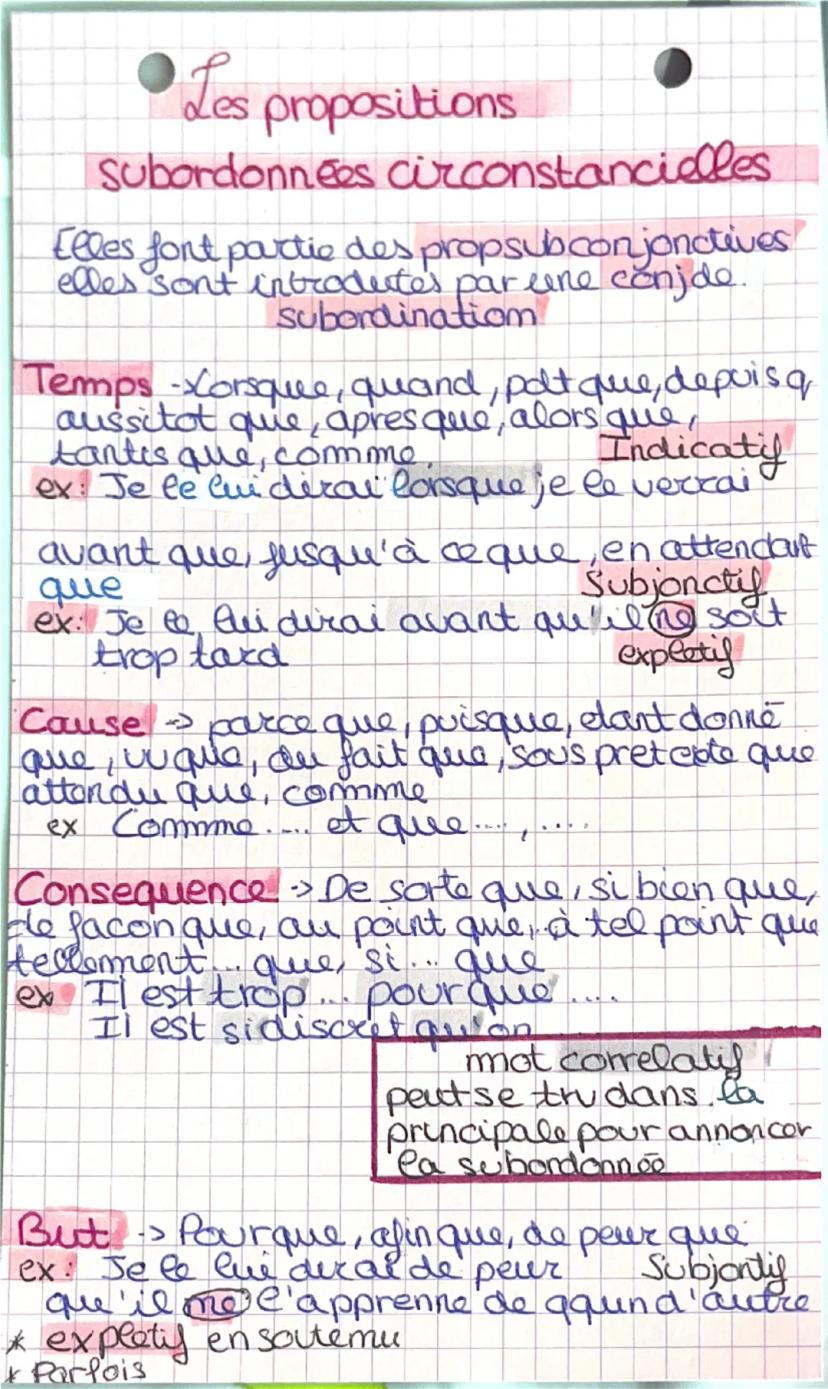 Les propositions
subordonnées circonstancielles
Elles font partie des prop sub conjonctives
elles sont introduites par une conj de
subordination
Temps -> Lorsque, quand, pdt que, depuis q
aussitot que, apres que, alors que,
tantis que, comme
Indicatif
ex: Je le lui dirai lorsque je le verrai
avant que, jusqu'à ce que, en attendant
que
Subjonctif
ex: Je le lui dirai avant qu'il ne soit
trop tard
expletif
Cause -> parce que, puisque, etant donné
que, vu que, du fait que, sous pretexte que
attendu que, comme
ex Comme.... et que...., ....
Consequence -> De sorte que, si bien que,
de facon que, au point que, à tel point que
tellement... que, si... que
ex Il est trop... pour que ....
Il est si discret qu'on
mot correlatif
peut se trv dans la
principale pour annoncer
la subordonnée
But -> Pour que, afin que, de peur que
ex: Je le lui dirai de peur
Subjontif
qu'il ne l'apprenne de qqun d'autre
* expletif en soutenu
* Parfois